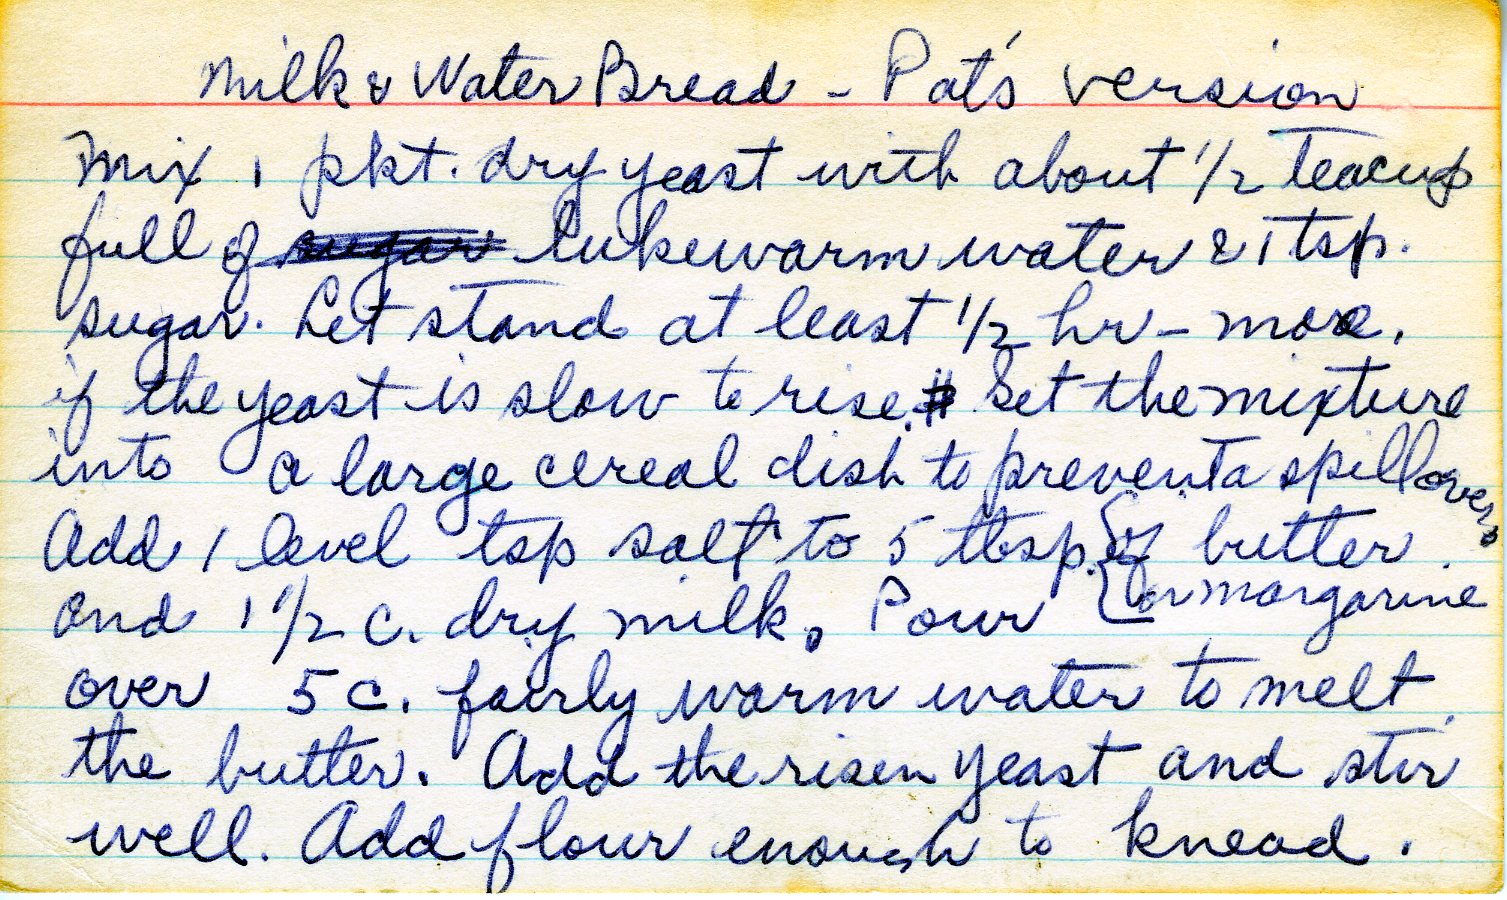 Milk & Water Bread - Pat's version
Mix 1 pkt. dry yeast with about 1/2 teacup
full of sugar lukewarm water & 1 tsp.
sugar. Let stand at least 1/2 hr - more,
if the yeast is slow to rise. Set the mixture
into a large cereal dish to prevent a spillover.
Add 1 level tsp salt to 5 tbsp. of butter
and 1 1/2 c. dry milk. Pour or margarine
over 5 c. fairly warm water to melt
the butter. Add the risen yeast and stir
well. Add flour enough to knead.